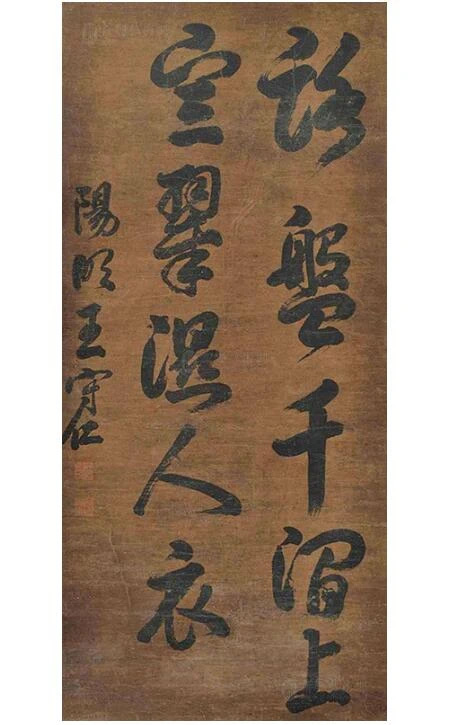 路盤千澗上
空翠濕人衣
陽明王守仁